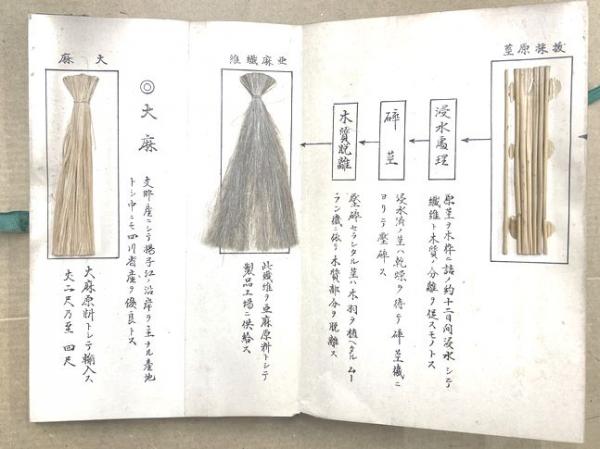 抜抹原茎
浸水處理
原茎ヲ木枠ニ詰メ約十二日间浸水シテ
繊維ト木質ノ分離ヲ促スモノトス
碎茎
浸水済ノ茎ハ乾燥ヲ待テ碎茎機ニ
ヨリテ壓碎ス
木質脱離
壓碎セラレタル茎ハ木羽ヲ植ヘタルムー
ラン機ニ依リ木質部分ヲ脱離ス
亜麻纎維
此纎維ヲ亜麻原料トシテ
製品工場ニ供給ス
大麻
◎大麻
支那産ニシテ揚子江ノ沿岸ヲ主ナル産地
トシ中ニモ四川省産ヲ優良トス
大麻原料トシテ輸入ス
丈二尺乃至四尺